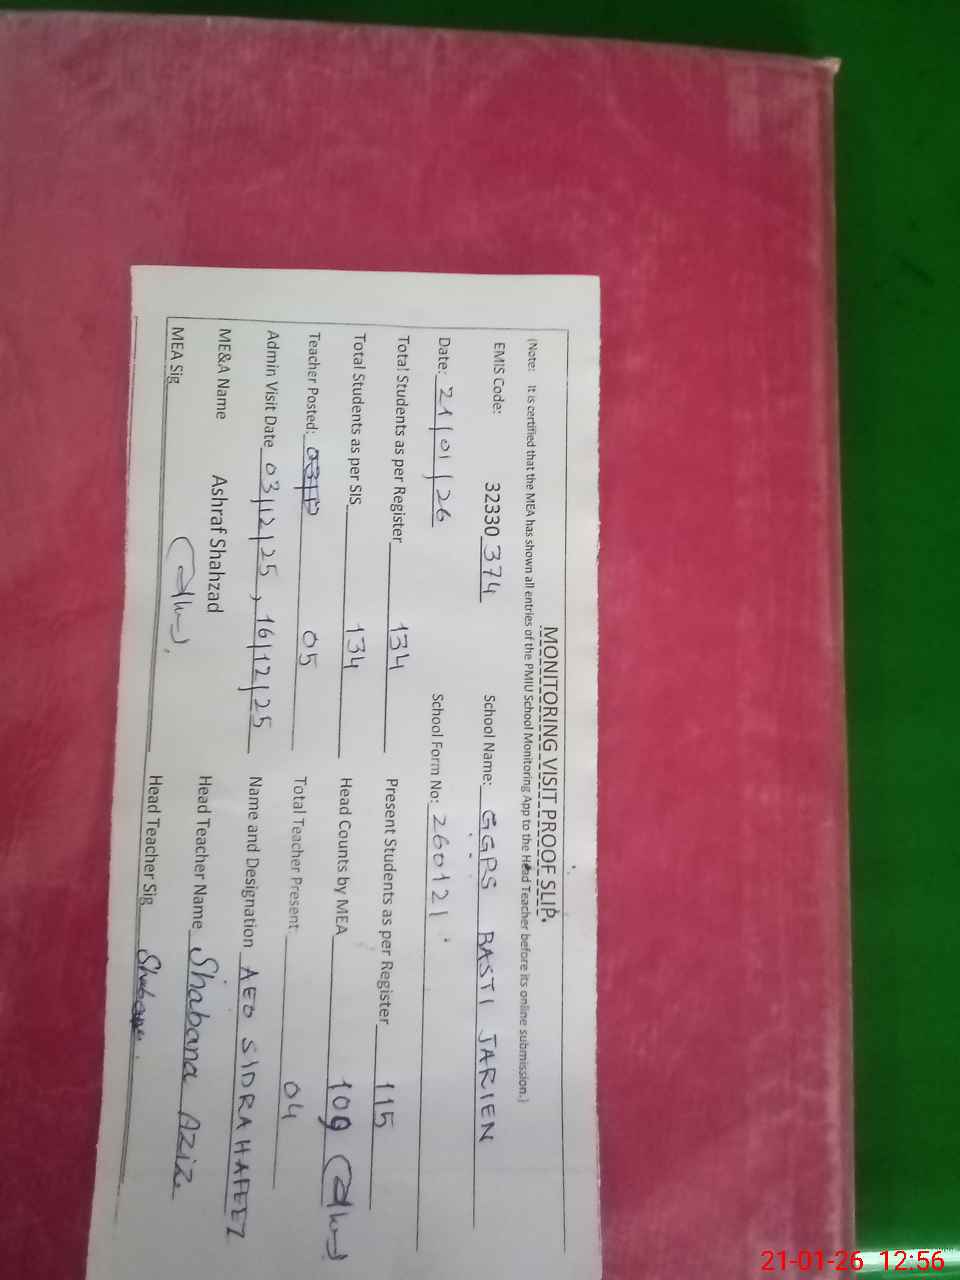 MONITORING VISIT PROOF SLIP.
(Note: It is certified that the MEA has shown all entries of the PMIU School Monitoring App to the Head Teacher before its online submission.)
EMIS Code: 32330 374 School Name: GGPS BASTI JARIEN
Date: 21/01/26 School Form No: 260121
Total Students as per Register 134 Present Students as per Register 115
Total Students as per SIS 134 Head Counts by MEA 109
Teacher Posted: 05 Total Teacher Present 04
Admin Visit Date 03/12/25, 16/12/25 Name and Designation AEO SIDRA HAFEEZ
ME&A Name Ashraf Shahzad Head Teacher Name Shabana Aziz
MEA Sig Head Teacher Sig Shabana
21-01-26 12:56